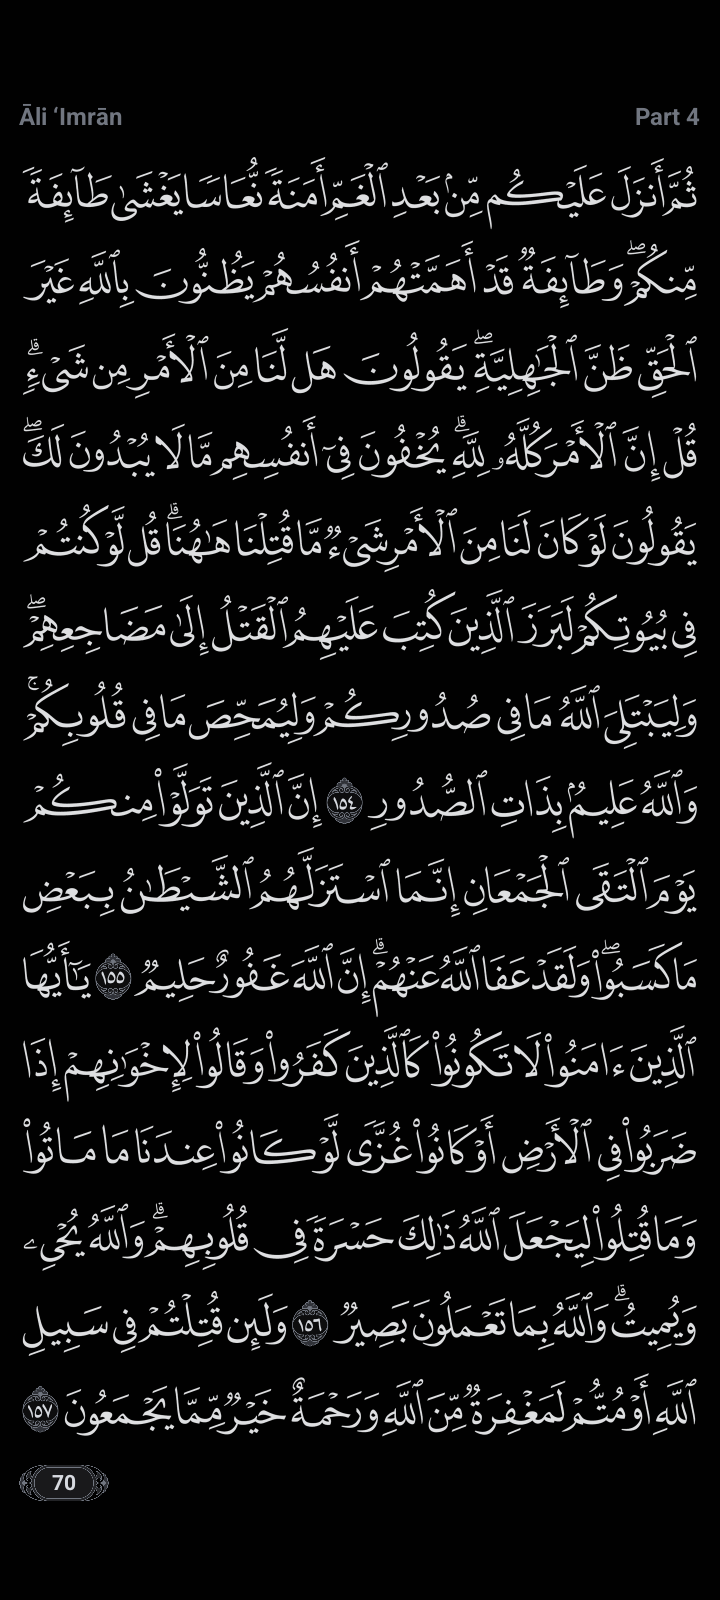 Āli ‘Imrān
Part 4
ثُمَّ أَنزَلَ عَلَيْكُم مِّنۢ بَعْدِ ٱلْغَمِّ أَمَنَةً نُّعَاسًا يَغْشَىٰ طَآئِفَةً
مِّنكُمْ ۖ وَطَآئِفَةٌ قَدْ أَهَمَّتْهُمْ أَنفُسُهُمْ يَظُنُّونَ بِٱللَّهِ غَيْرَ
ٱلْحَقِّ ظَنَّ ٱلْجَـٰهِلِيَّةِ ۖ يَقُولُونَ هَل لَّنَا مِنَ ٱلْأَمْرِ مِن شَىْءٍ ۗ
قُلْ إِنَّ ٱلْأَمْرَ كُلَّهُۥ لِلَّهِ ۗ يُخْفُونَ فِىٓ أَنفُسِهِم مَّا لَا يُبْدُونَ لَكَ ۖ
يَقُولُونَ لَوْ كَانَ لَنَا مِنَ ٱلْأَمْرِ شَىْءٌ مَّا قُتِلْنَا هَـٰهُنَا ۗ قُل لَّوْ كُنتُمْ
فِى بُيُوتِكُمْ لَبَرَزَ ٱلَّذِينَ كُتِبَ عَلَيْهِمُ ٱلْقَتْلُ إِلَىٰ مَضَاجِعِهِمْ ۖ
وَلِيَبْتَلِىَ ٱللَّهُ مَا فِى صُدُورِكُمْ وَلِيُمَحِّصَ مَا فِى قُلُوبِكُمْ ۚ
وَٱللَّهُ عَلِيمٌۢ بِذَاتِ ٱلصُّدُورِ ١٥٤ إِنَّ ٱلَّذِينَ تَوَلَّوْا۟ مِنكُمْ
يَوْمَ ٱلْتَقَى ٱلْجَمْعَانِ إِنَّمَا ٱسْتَزَلَّهُمُ ٱلشَّيْطَـٰنُ بِبَعْضِ
مَا كَسَبُوا۟ ۖ وَلَقَدْ عَفَا ٱللَّهُ عَنْهُمْ ۗ إِنَّ ٱللَّهَ غَفُورٌ حَلِيمٌ ١٥٥ يَـٰٓأَيُّهَا
ٱلَّذِينَ ءَامَنُوا۟ لَا تَكُونُوا۟ كَٱلَّذِينَ كَفَرُوا۟ وَقَالُوا۟ لِإِخْوَٰنِهِمْ إِذَا
ضَرَبُوا۟ فِى ٱلْأَرْضِ أَوْ كَانُوا۟ غُزًّى لَّوْ كَانُوا۟ عِندَنَا مَا مَاتُوا۟
وَمَا قُتِلُوا۟ لِيَجْعَلَ ٱللَّهُ ذَٰلِكَ حَسْرَةً فِى قُلُوبِهِمْ ۗ وَٱللَّهُ يُحْىِۦ
وَيُمِيتُ ۗ وَٱللَّهُ بِمَا تَعْمَلُونَ بَصِيرٌ ١٥٦ وَلَئِن قُتِلْتُمْ فِى سَبِيلِ
ٱللَّهِ أَوْ مُتُّمْ لَمَغْفِرَةٌ مِّنَ ٱللَّهِ وَرَحْمَةٌ خَيْرٌ مِّمَّا يَجْمَعُونَ ١٥٧
70